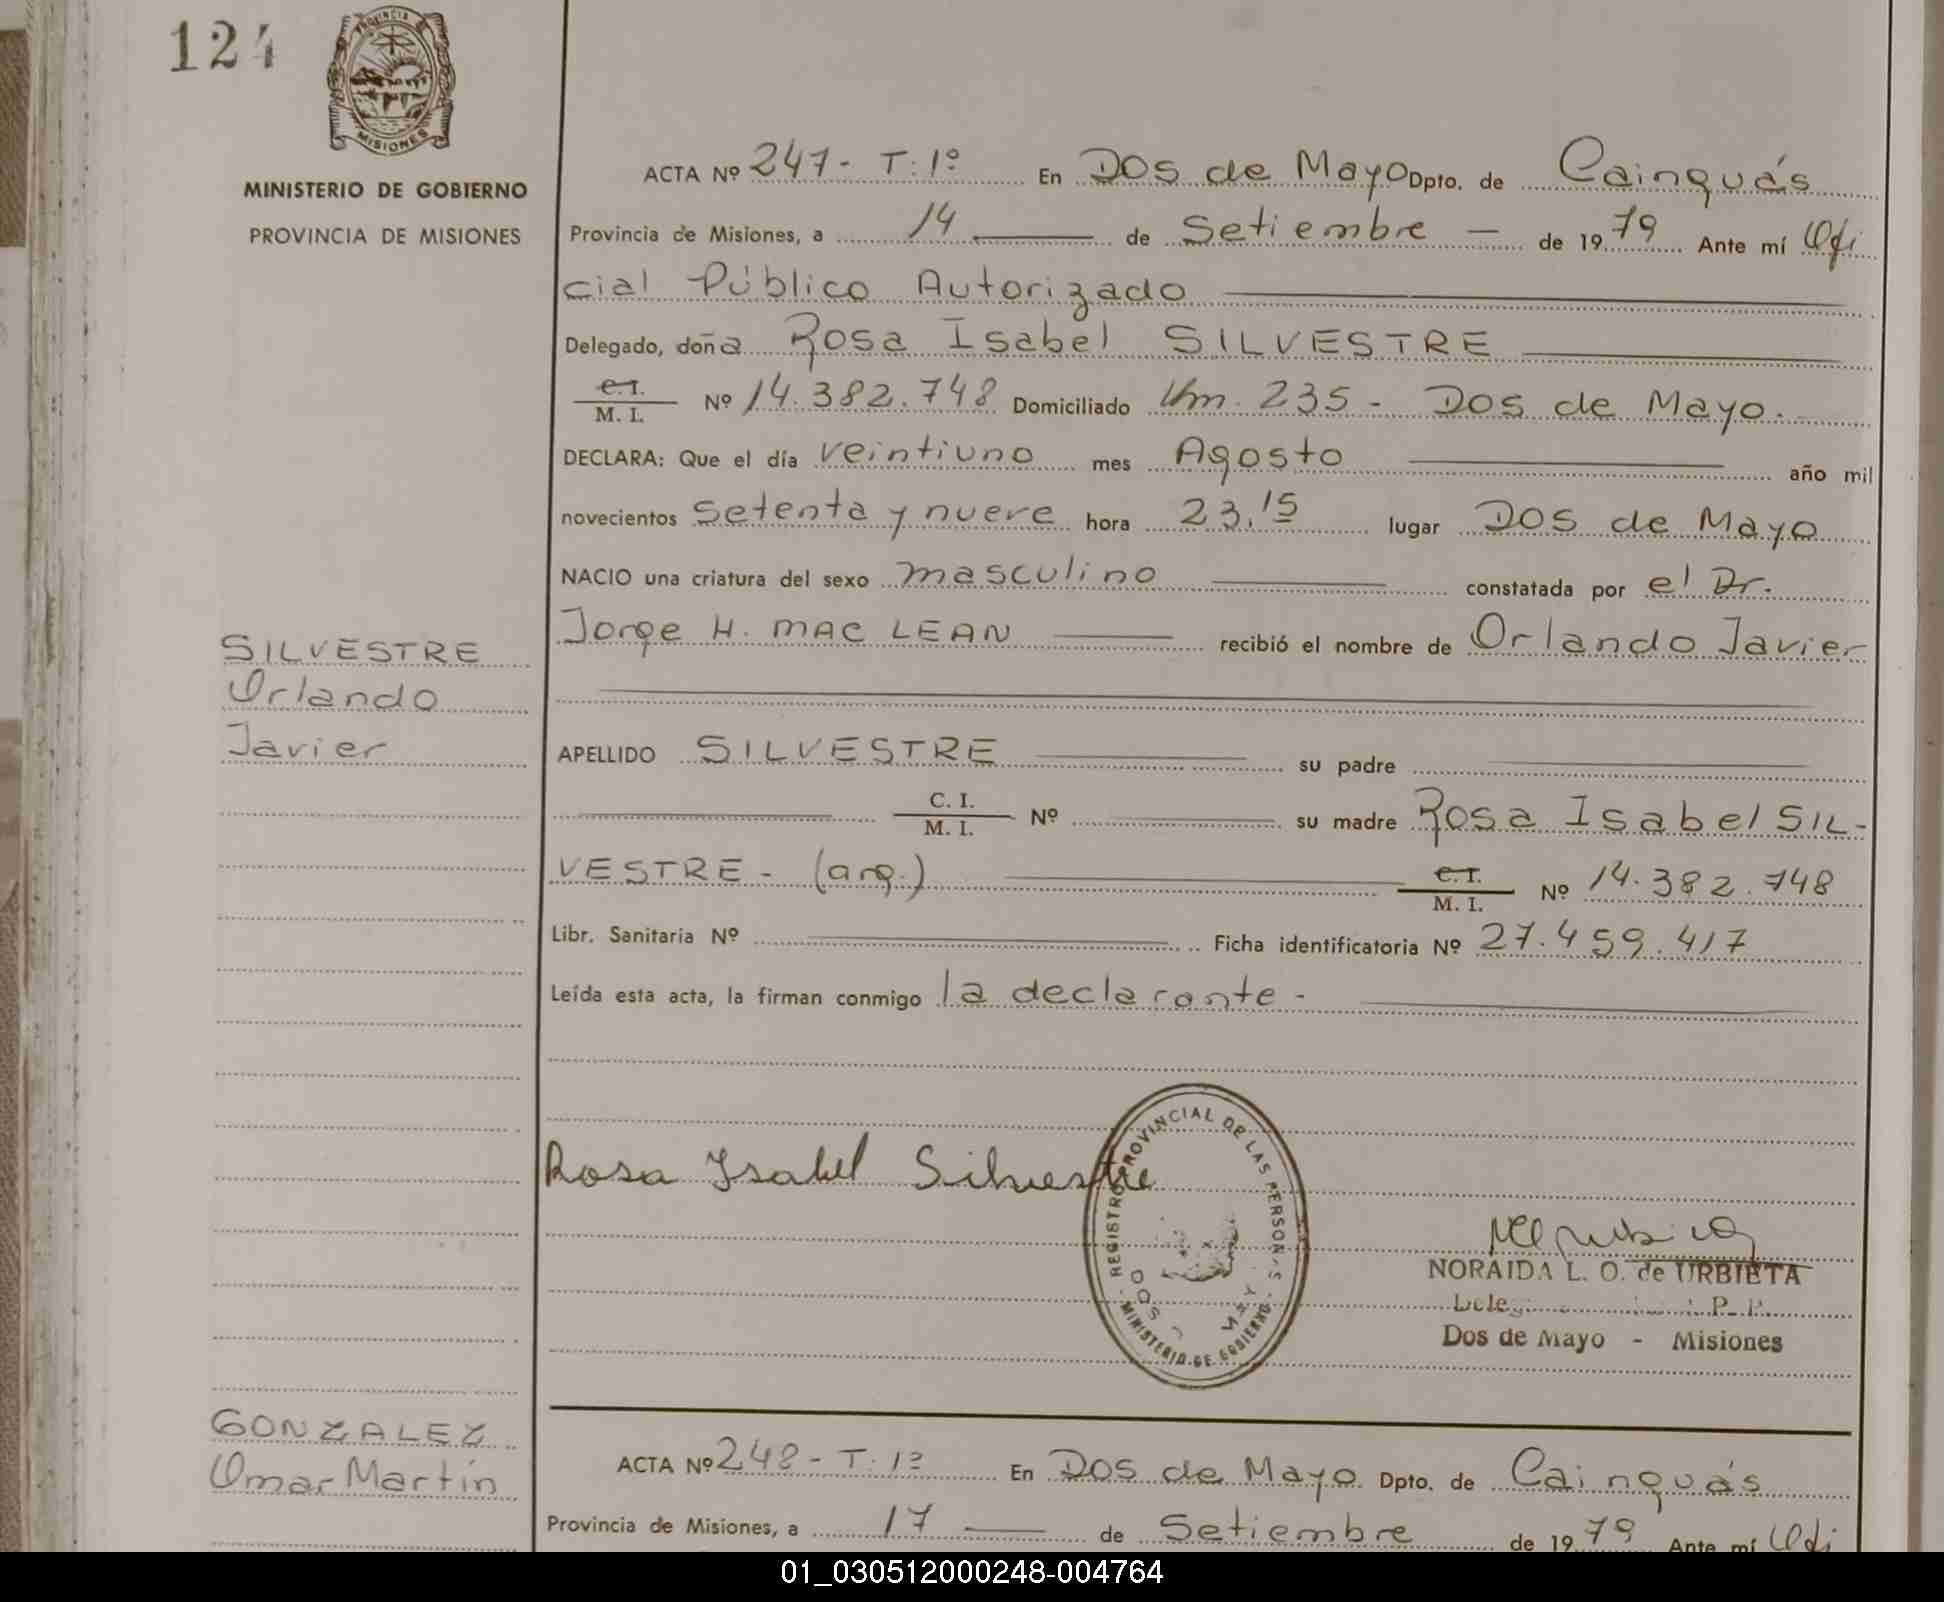 124
PROVINCIA
MISIONES
MINISTERIO DE GOBIERNO
PROVINCIA DE MISIONES
ACTA Nº 247- T: 1º En Dos de Mayo Dpto. de Cainguás
Provincia de Misiones, a 14 de Setiembre - de 1979 Ante mí Ofi
cial Público Autorizado
Delegado, doña Rosa Isabel SILVESTRE
C.I. / M. I. Nº 14.382.748 Domiciliado Km. 235 - Dos de Mayo.
DECLARA: Que el día veintiuno mes Agosto año mil
novecientos setenta y nueve hora 23,15 lugar Dos de Mayo
NACIO una criatura del sexo masculino constatada por el Dr.
Jorge H. MAC LEAN recibió el nombre de Orlando Javier
SILVESTRE
Orlando
Javier
APELLIDO SILVESTRE su padre
C. I. / M. I. Nº su madre Rosa Isabel SIL-
VESTRE - (arg.) C.I. / M. I. Nº 14.382.748
Libr. Sanitaria Nº Ficha identificatoria Nº 27.459.417
Leída esta acta, la firman conmigo la declarante -
Rosa Isabel Silvestre
REGISTRO PROVINCIAL DE LAS PERSONAS
MINISTERIO DE GOBIERNO
NORAIDA L. O. de URBIETA
Dos de Mayo - Misiones
GONZALEZ
Omar Martín
ACTA Nº 248 - T: 1º En Dos de Mayo Dpto. de Cainguás
Provincia de Misiones, a 17 de Setiembre de 1979 Ante mí Ofi
01_030512000248-004764